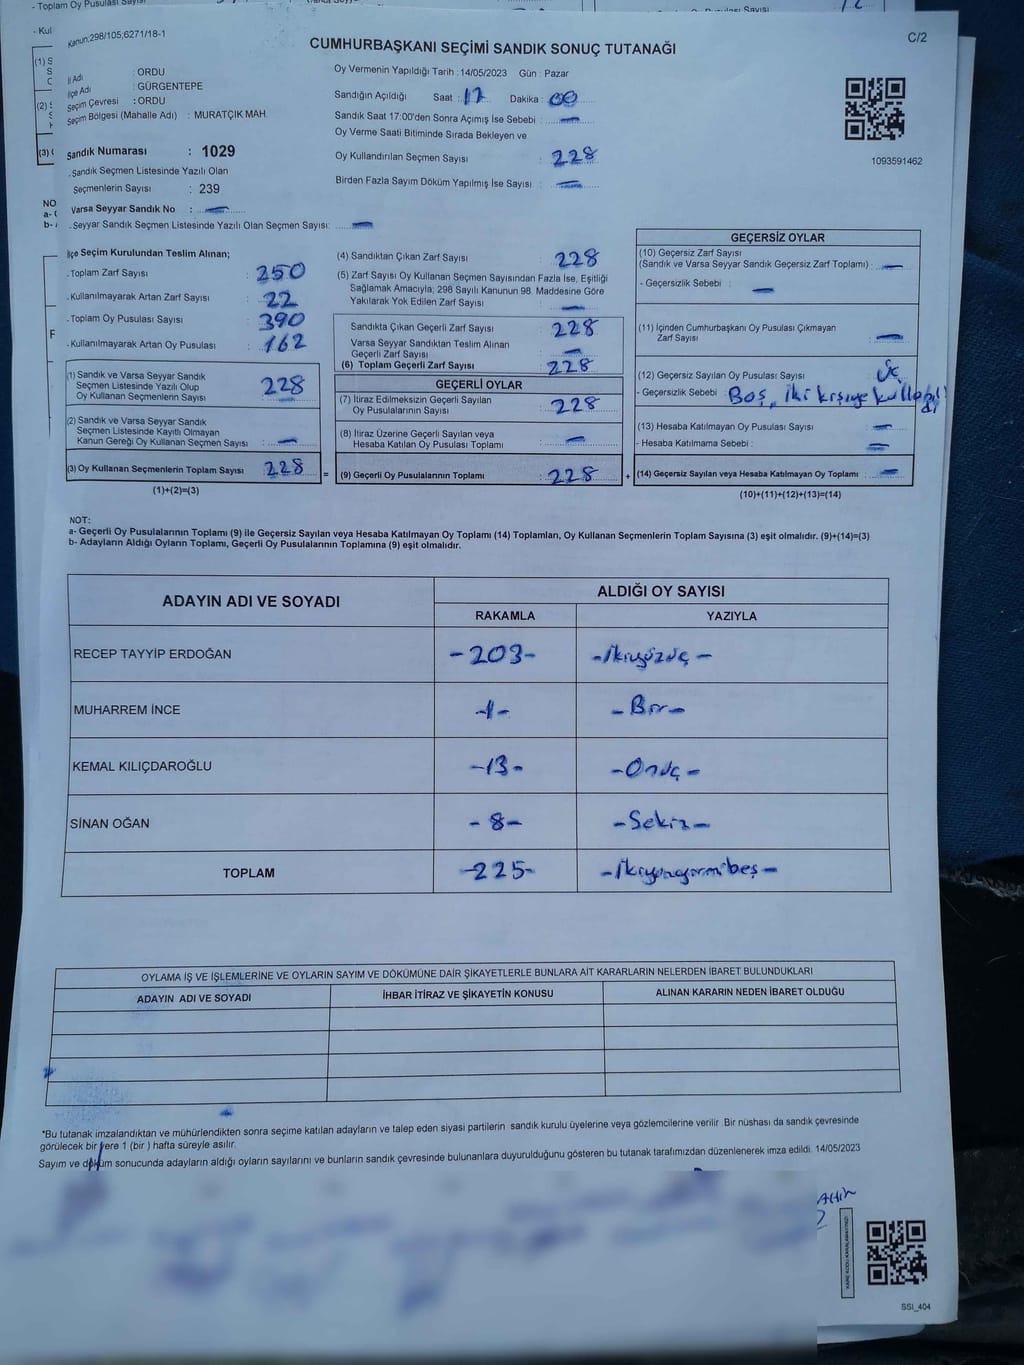 - Toplam Oy Pusulası Sayısı
Kanun:298/105;6271/18-1
C/2
CUMHURBAŞKANI SEÇİMİ SANDIK SONUÇ TUTANAĞI
İl Adı : ORDU
İlçe Adı : GÜRGENTEPE
Seçim Çevresi : ORDU
Seçim Bölgesi (Mahalle Adı) : MURATÇIK MAH.
Sandık Numarası : 1029
.Sandık Seçmen Listesinde Yazılı Olan
Seçmenlerin Sayısı : 239
Varsa Seyyar Sandık No : —
.Seyyar Sandık Seçmen Listesinde Yazılı Olan Seçmen Sayısı: —
Oy Vermenin Yapıldığı Tarih :14/05/2023 Gün : Pazar
Sandığın Açıldığı Saat : 17 Dakika : 00
Sandık Saat 17:00'den Sonra Açımış İse Sebebi : —
Oy Verme Saati Bitiminde Sırada Bekleyen ve
Oy Kullandırılan Seçmen Sayısı : 228
Birden Fazla Sayım Döküm Yapılmış İse Sayısı : —
1093591462
İlçe Seçim Kurulundan Teslim Alınan;
.Toplam Zarf Sayısı : 250
.Kullanılmayarak Artan Zarf Sayısı : 22
.Toplam Oy Pusulası Sayısı : 390
.Kullanılmayarak Artan Oy Pusulası : 162
(1) Sandık ve Varsa Seyyar Sandık
Seçmen Listesinde Yazılı Olup
Oy Kullanan Seçmenlerin Sayısı : 228
(2) Sandık ve Varsa Seyyar Sandık
Seçmen Listesinde Kayıtlı Olmayan
Kanun Gereği Oy Kullanan Seçmen Sayısı : —
(3) Oy Kullanan Seçmenlerin Toplam Sayısı 228
(1)+(2)=(3)
(4) Sandıktan Çıkan Zarf Sayısı : 228
(5) Zarf Sayısı Oy Kullanan Seçmen Sayısından Fazla İse, Eşitliği
Sağlamak Amacıyla; 298 Sayılı Kanunun 98. Maddesine Göre
Yakılarak Yok Edilen Zarf Sayısı : —
Sandıkta Çıkan Geçerli Zarf Sayısı : 228
Varsa Seyyar Sandıktan Teslim Alınan
Geçerli Zarf Sayısı : —
(6) Toplam Geçerli Zarf Sayısı : 228
GEÇERLİ OYLAR
(7) İtiraz Edilmeksizin Geçerli Sayılan
Oy Pusulalarının Sayısı : 228
(8) İtiraz Üzerine Geçerli Sayılan veya
Hesaba Katılan Oy Pusulası Toplamı : —
= (9) Geçerli Oy Pusulalarının Toplamı : 228 +
GEÇERSİZ OYLAR
(10) Geçersiz Zarf Sayısı
(Sandık ve Varsa Seyyar Sandık Geçersiz Zarf Toplamı) : —
- Geçersizlik Sebebi : —
(11) İçinden Cumhurbaşkanı Oy Pusulası Çıkmayan
Zarf Sayısı : —
(12) Geçersiz Sayılan Oy Pusulası Sayısı : Üç
- Geçersizlik Sebebi : Boş, iki kişiye kullanıldı
(13) Hesaba Katılmayan Oy Pusulası Sayısı : —
- Hesaba Katılmama Sebebi : —
(14) Geçersiz Sayılan veya Hesaba Katılmayan Oy Toplamı : —
(10)+(11)+(12)+(13)=(14)
NOT:
a- Geçerli Oy Pusulalarının Toplamı (9) ile Geçersiz Sayılan veya Hesaba Katılmayan Oy Toplamı (14) Toplamları, Oy Kullanan Seçmenlerin Toplam Sayısına (3) eşit olmalıdır. (9)+(14)=(3)
b- Adayların Aldığı Oyların Toplamı, Geçerli Oy Pusulalarının Toplamına (9) eşit olmalıdır.
ADAYIN ADI VE SOYADI ALDIĞI OY SAYISI
RAKAMLA YAZIYLA
RECEP TAYYİP ERDOĞAN -203- -İkiyüzüç-
MUHARREM İNCE -1- -Bir-
KEMAL KILIÇDAROĞLU -13- -Onüç-
SİNAN OĞAN -8- -Sekiz-
TOPLAM -225- -İkiyüzyirmibeş-
OYLAMA İŞ VE İŞLEMLERİNE VE OYLARIN SAYIM VE DÖKÜMÜNE DAİR ŞİKAYETLERLE BUNLARA AİT KARARLARIN NELERDEN İBARET BULUNDUKLARI
ADAYIN ADI VE SOYADI İHBAR İTİRAZ VE ŞİKAYETİN KONUSU ALINAN KARARIN NEDEN İBARET OLDUĞU
*Bu tutanak imzalandıktan ve mühürlendikten sonra seçime katılan adayların ve talep eden siyasi partilerin sandık kurulu üyelerine veya gözlemcilerine verilir. Bir nüshası da sandık çevresinde
görülecek bir yere 1 (bir ) hafta süreyle asılır.
Sayım ve döküm sonucunda adayların aldığı oyların sayılarını ve bunların sandık çevresinde bulunanlara duyurulduğunu gösteren bu tutanak tarafımızdan düzenlenerek imza edildi. 14/05/2023
SSI_404